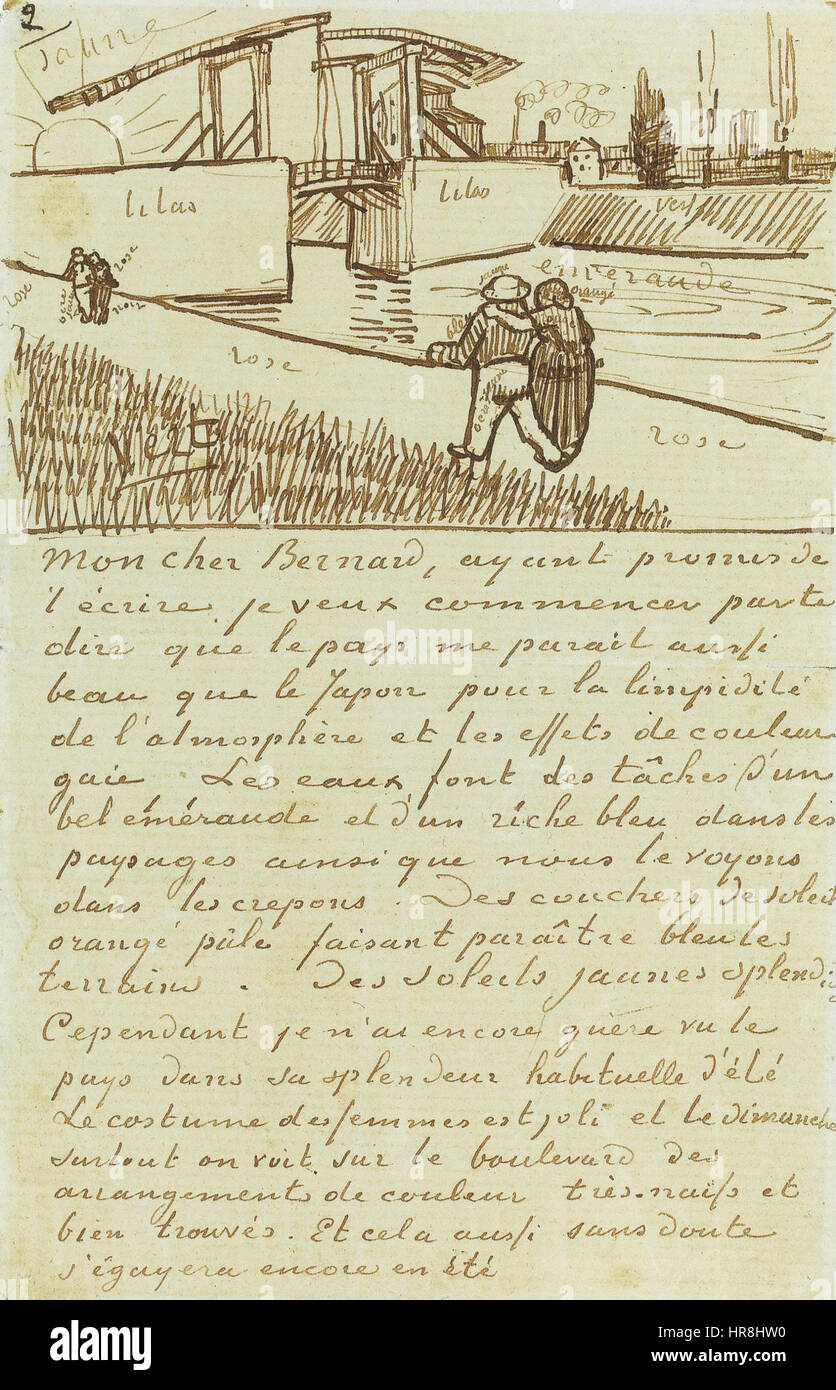 2
Jaune
lilas
lilas
vert
emeraude
rose
rose
rose
noir
jaune
orangé
bleu
rose
jaune
vert
rose
Mon cher Bernard, ayant promis de
t'écrire je veux commencer par te
dire que le pays me parait aussi
beau que le Japon pour la limpidité
de l'atmosphère et les effets de couleur
gaie. Les eaux font des tâches d'un
bel éméraude et d'un riche bleu dans les
paysages ainsi que nous le voyons
dans les crepons. Des couchers de soleil
orangé pâle faisant paraître bleu les
terrains. Des soleils jaunes splendides
Cependant je n'ai encore guère vu le
pays dans sa splendeur habituelle d'été
Le costume des femmes est joli et le dimanche
surtout on voit sur le boulevard des
arrangements de couleur très-naifs et
bien trouvés. Et cela aussi sans doute
s'égayera encore en été
alamy
alamy stock photo
HR8HW0
www.alamy.com